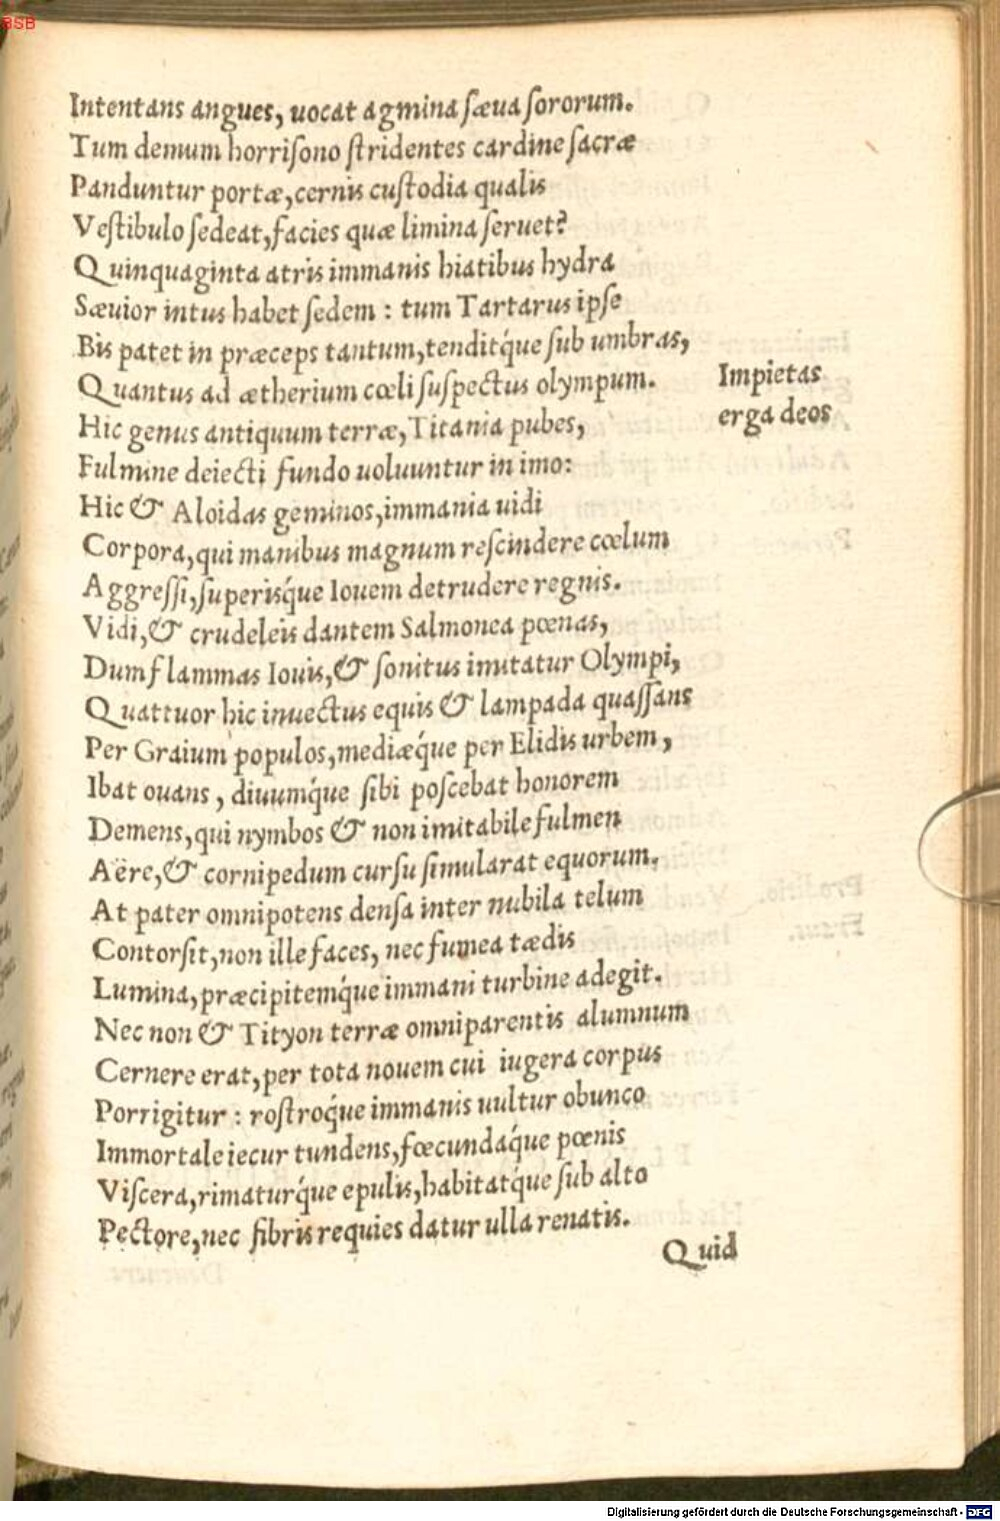 BSB
Intentans angues, uocat agmina sæua sororum.
Tum demum horrisono stridentes cardine sacræ
Panduntur portæ, cernis custodia qualis
Vestibulo sedeat, facies quæ limina seruet?
Quinquaginta atris immanis hiatibus hydra
Sæuior intus habet sedem : tum Tartarus ipse
Bis patet in præceps tantum, tenditq́ue sub umbras,
Quantus ad ætherium cœli suspectus olympum.
Impietas
erga deos
Hic genus antiquum terræ, Titania pubes,
Fulmine deiecti fundo uoluuntur in imo:
Hic & Aloidas geminos, immania uidi
Corpora, qui manibus magnum rescindere cœlum
Aggressi, superisq́ue Iouem detrudere regnis.
Vidi, & crudeleis dantem Salmonea pœnas,
Dum flammas Iouis, & sonitus imitatur Olympi,
Quattuor hic inuectus equis & lampada quassans
Per Graium populos, mediæq́ue per Elidis urbem,
Ibat ouans, diuumq́ue sibi poscebat honorem
Demens, qui nymbos & non imitabile fulmen
Aëre, & cornipedum cursu simularat equorum.
At pater omnipotens densa inter nubila telum
Contorsit, non ille faces, nec fumea tædis
Lumina, præcipitemq́ue immani turbine adegit.
Nec non & Tityon terræ omniparentis alumnum
Cernere erat, per tota nouem cui iugera corpus
Porrigitur : rostroq́ue immanis uultur obunco
Immortale iecur tundens, fœcundaq́ue pœnis
Viscera, rimaturq́ue epulis, habitatq́ue sub alto
Pectore, nec fibris requies datur ulla renatis.
Quid
Digitalisierung gefördert durch die Deutsche Forschungsgemeinschaft - DFG